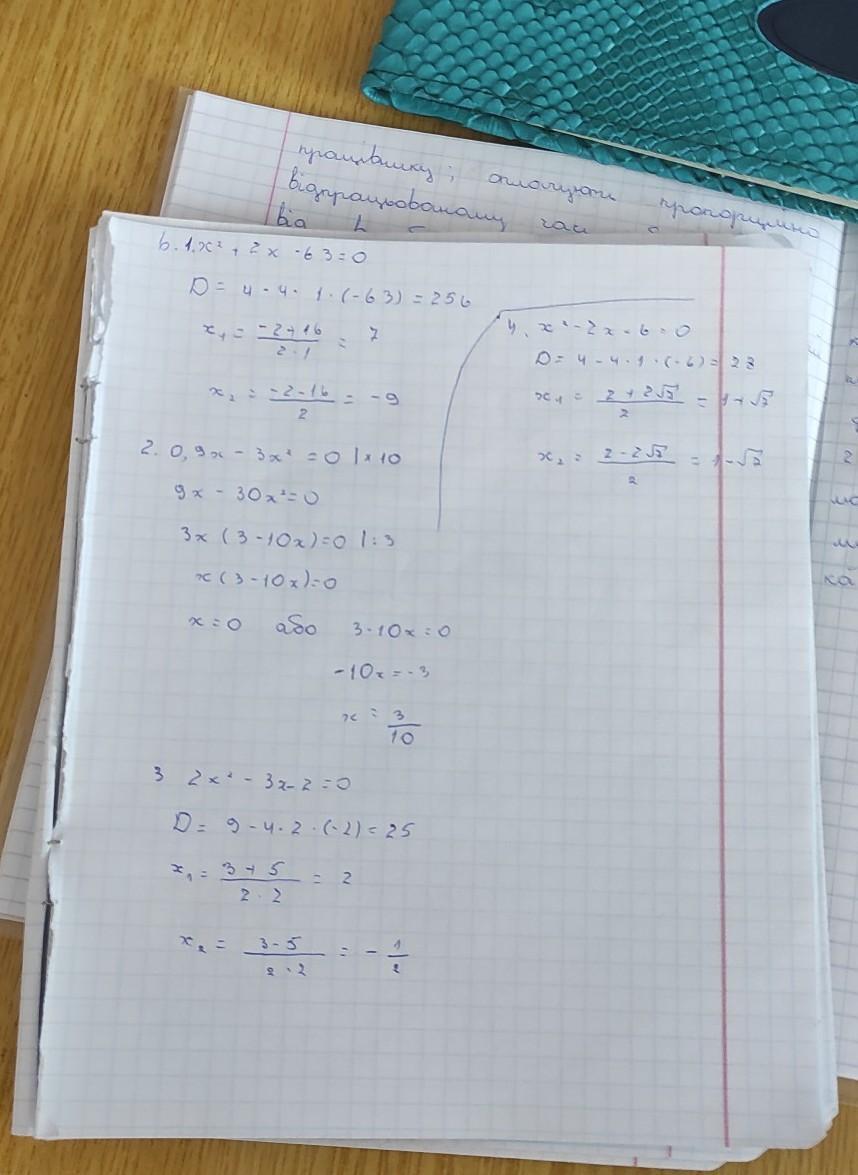 працівнику; оплачують пропорційно
відпрацьованому
від
6. 1. x² + 2x - 63 = 0
D = 4 - 4 · 1 · (-63) = 256
x₁ = (-2+16)/(2·1) = 7
x₂ = (-2-16)/2 = -9
2. 0,9x - 3x² = 0 | × 10
9x - 30x² = 0
3x (3 - 10x) = 0 | : 3
x (3 - 10x) = 0
x = 0 або 3 - 10x = 0
-10x = -3
x = 3/10
3 2x² - 3x - 2 = 0
D = 9 - 4 · 2 · (-2) = 25
x₁ = (3 + 5)/(2 · 2) = 2
x₂ = (3 - 5)/(2 · 2) = - 1/2
4. x² - 2x - 6 = 0
D = 4 - 4 · 1 · (-6) = 28
x₁ = (2 + 2√7)/2 = 1 + √7
x₂ = (2 - 2√7)/2 = 1 - √7